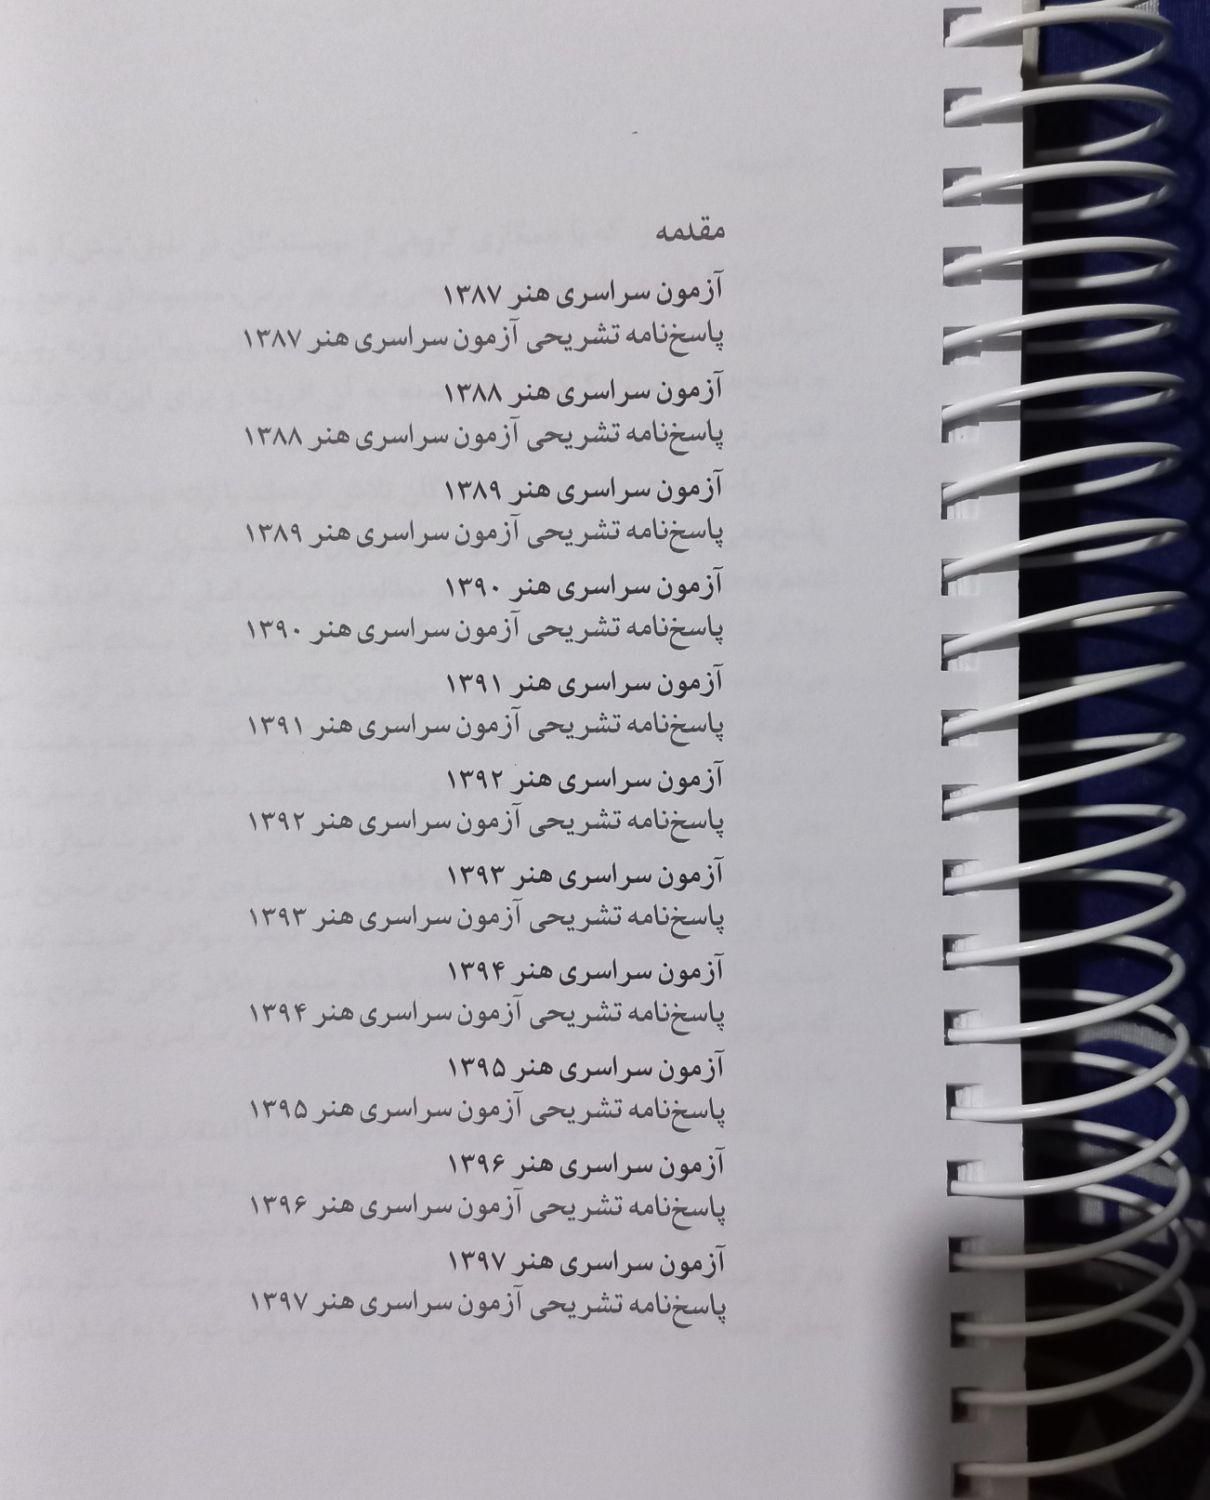 مقدمه
آزمون سراسری هنر ۱۳۸۷
پاسخ‌نامه تشریحی آزمون سراسری هنر ۱۳۸۷
آزمون سراسری هنر ۱۳۸۸
پاسخ‌نامه تشریحی آزمون سراسری هنر ۱۳۸۸
آزمون سراسری هنر ۱۳۸۹
پاسخ‌نامه تشریحی آزمون سراسری هنر ۱۳۸۹
آزمون سراسری هنر ۱۳۹۰
پاسخ‌نامه تشریحی آزمون سراسری هنر ۱۳۹۰
آزمون سراسری هنر ۱۳۹۱
پاسخ‌نامه تشریحی آزمون سراسری هنر ۱۳۹۱
آزمون سراسری هنر ۱۳۹۲
پاسخ‌نامه تشریحی آزمون سراسری هنر ۱۳۹۲
آزمون سراسری هنر ۱۳۹۳
پاسخ‌نامه تشریحی آزمون سراسری هنر ۱۳۹۳
آزمون سراسری هنر ۱۳۹۴
پاسخ‌نامه تشریحی آزمون سراسری هنر ۱۳۹۴
آزمون سراسری هنر ۱۳۹۵
پاسخ‌نامه تشریحی آزمون سراسری هنر ۱۳۹۵
آزمون سراسری هنر ۱۳۹۶
پاسخ‌نامه تشریحی آزمون سراسری هنر ۱۳۹۶
آزمون سراسری هنر ۱۳۹۷
پاسخ‌نامه تشریحی آزمون سراسری هنر ۱۳۹۷